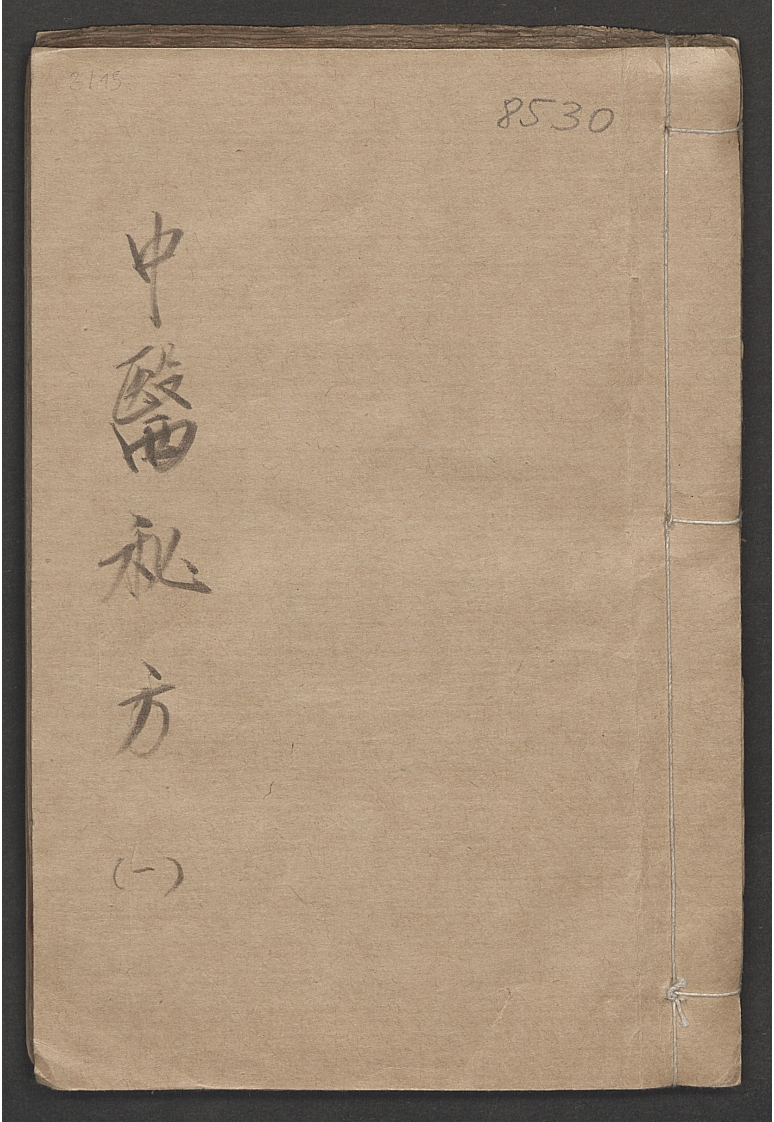 8530
中醫秘方
(一)